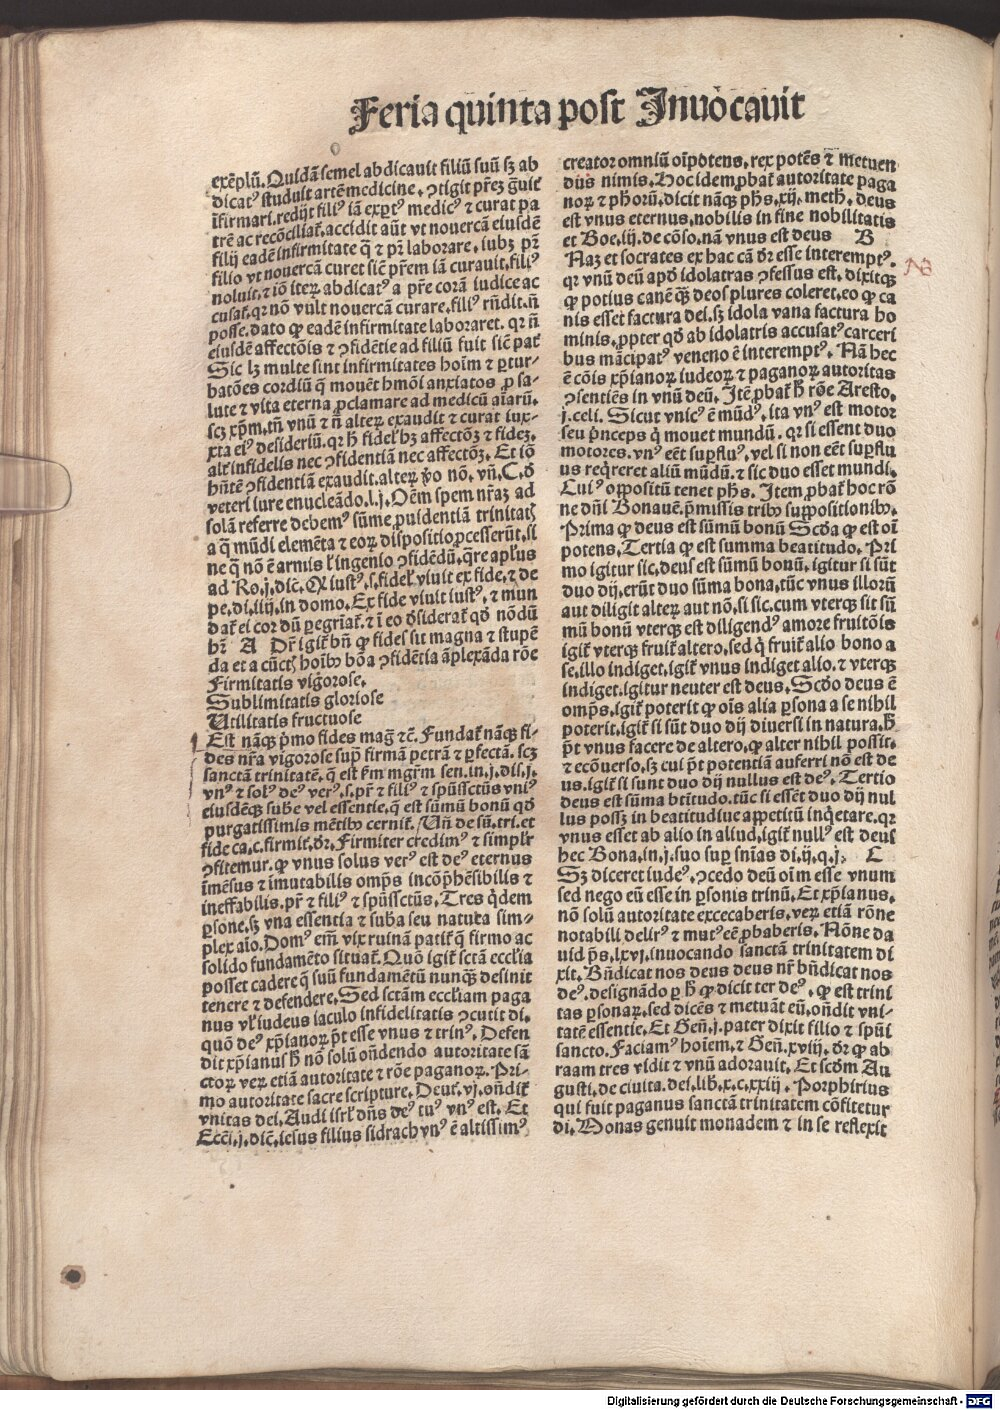 Feria quinta post Inuocauit
exēplū. Quidā semel abdicauit filiū suū sꝫ ab
dicatꝰ studuit artē medicine, ↄtigit p̄rēꝫ g̃uit᷑
ifirmari. redijt filiꝰ iā exꝑtꝰ medicꝰ ⁊ curat pa
trē ac recōciliat᷑. accidit aūt vt nouercā eiusdē
filij eadē infirmitate q̄ ⁊ pr̄ laborare. iubꝫ pr̄
filio vt nouercā curet sic̄ p̄rem iā curauit. filiꝰ
noluit. ⁊ iō iterꝝ abdicatꝰ a p̄re corā iudice ac
cusat᷑. qꝛ nō vult nouercā curare. filiꝰ rn̄dit. n̄
posse. dato ꝙ eadē infirmitate laboraret. qꝛ n̄
eiusdē affectōis ⁊ ↄfidētie ad filiū fuit sic̄ pat᷑
Sic lꝫ multe sint infirmitates hoīm ⁊ ꝑtur-
batōes cordiū q̄ mouēt hmōi anxiatos ꝓ sa-
lute ⁊ vita eterna ꝓclamare ad medicū aīarū.
scꝫ xp̄m. tn̄ vnū ⁊ n̄ alterꝝ exaudit ⁊ curat iux-
xta eiꝰ desideriū. qꝛ h̄ fidel᷑ hꝫ affectōꝫ ⁊ fideꝫ.
alt᷑ infidelis nec ↄfidentiā nec affectōꝫ. Et iō
hn̄tē ↄfidentiā exaudit. alterꝝ ꝟo nō. vn̄. C. ō
veteri iure enucleādo. l. j. Oēm spem nr̄aꝫ ad
solā referre debemꝰ sūme ꝓuidentiā trinitatꝭ
a q̄ mūdi elemēta ⁊ eoꝝ dispositio ꝓcesserūt. si
ne q̄ nō ē armis l᷑ ingenio ↄfidēdū. q̄re apl᷑us
ad Ro. j. dic̄. Qꝛ iustꝰ. s. fidel᷑ viuit ex fide. ⁊ de
pe. di. iiij. in domo. Ex fide viuit iustꝰ. ⁊ mun
dat᷑ ei cor dū ꝑegrinat᷑. ⁊ i eo ō̄siderat᷑ qd̄ nōdū
hr̄ A Pr̄ igit᷑ bn̄ ꝙ fides sit magna ⁊ stupē
da et a cūctꝭ hoībꝰ bōa ↄfidētia āplexāda rōe
Firmitatis vigorose.
Sublimitatis gloriose
Utilitatis fructuose
Est nāqꝫ p̄mo fides mag᷑ ⁊c̄. Fundat᷑ nāqꝫ fi-
des nr̄a vigorose sup̄ firmā petrā ⁊ ꝑfectā. scꝫ
sanctā trinitatē. q̄ est ẜm mgr̄m sen. in. j. dis. j.
vnꝰ ⁊ solꝰ deꝰ verꝰ. s. pr̄ ⁊ filiꝰ ⁊ spūssctūs vniꝰ
eiusdēqꝫ sub̄e vel essentie. q̄ est sūmū bonū qd̄
purgatissimis mētibꝰ cernit᷑. Vn̄ de sū. tri. et
fide ca. c. firmit. dr̄. Firmiter credimꝰ ⁊ simplr̄
ↄfitemur. ꝙ vnus solus verꝰ est deꝰ eternus
īmēsus ⁊ īmutabilis omp̄s incōp̄hēsibilis ⁊
ineffabilis. pr̄ ⁊ filiꝰ ⁊ spūssctūs. Tres q̇dem
ꝑsone. sꝫ vna essentia ⁊ sub̄a seu natura sim-
plex aīo. Domꝰ em̄ vix ruinā patit᷑ q̄ firmo ac
solido fundamēto situat᷑. Quō igit᷑ sctā eccl᷑ia
posset cadere q̄ suū fundamētū nunqꝫ desinit
tenere ⁊ defendere. Sed sctām eccl᷑iam paga
nus vl᷑ iudeus iaculo infidelitatis ↄcutit di.
quō deꝰ xp̄ianoꝝ p̄t esse vnus ⁊ trinꝰ. Defen
dit xp̄ianus h̄ nō solū oñdendo autoritate sā
ctoꝝ veꝝ etiā autoritate ⁊ rōe paganoꝝ. Pri-
mo autoritate sacre scripture. Deut᷑. vj. oñdit᷑
vnitas dei. Audi isrl᷑ dn̄s deꝰ tuꝰ vnꝰ est. Et
Ecc̄i. j. dic̄. iesus filius sidrach vnꝰ ē altissimꝰ
creator omniū oīpotens. rex potēs ⁊ metuen
dus nimis. Hoc idem ꝓbat᷑ autoritate paga
noꝝ ⁊ ph̄orū. dicit nāqꝫ ph̄s. xij. meth̄. deus
est vnus eternus. nobilis in fine nobilitatis
et Boe. iij. de cōso. nā vnus est deus B
Naꝫ et socrates ex hac cā dr̄ esse interemptꝰ.
qꝛ vnū deū apd̄ idolatras ↄfessus est. dixitqꝫ
ꝙ potius canē qꝫ deos plures coleret. eo ꝙ ca
nis esset factura dei. sꝫ idola vana factura ho
minis. ꝓpter qd̄ ab idolatris accusatꝰ carceri
bus mācipatꝰ veneno ē interemptꝰ. Nā hec
ē cōis xp̄ianoꝝ iudeoꝝ ⁊ paganoꝝ autoritas
ↄsentiēs in vnū deū. Itē ꝓbat᷑ h̄ rōe Aresto.
j. celi. Sicut vnicꝰ ē mūdꝰ. ita vnꝰ est motor
seu p̄nceps q̇ mouet mundū. qꝛ si essent duo
motores. vnꝰ eēt suꝑfluꝰ. vel si non eēt suꝑflu
us req̇reret aliū mūdū. ⁊ sic duo esset mundi.
Cuiꝰ oppositū tenet ph̄s. Item ꝓbat᷑ hoc rō
ne dn̄i Bonauē. p̄missis tribꝰ suppositionibꝰ.
Prima ꝙ deus est sūmū bonū Scd̄a ꝙ est oī
potens. Tertia ꝙ est summa beatitudo. Pri
mo igitur sic. deus est sūmū bonū. igitur si sūt
duo dij. erūt duo sūma bona. tūc vnus illorū
aut diligit alterꝝ aut nō. si sic. cum vterqꝫ sit sū
mū bonū vterqꝫ est diligendꝰ amore fruitōis
igit᷑ vterqꝫ fruit᷑ altero. sed q̇ fruit᷑ alio bono a
se. illo indiget. igit᷑ vnus indiget alio. ⁊ vterqꝫ
indiget. igitur neuter est deus. Scd̄o deus ē
omp̄s. igit᷑ poterit ꝙ oīs alia ꝑsona a se nihil
poterit. igit᷑ si sūt duo dij diuersi in natura. h̄
p̄t vnus facere de altero. ꝙ alter nihil possit.
⁊ ecōuerso. sꝫ cui p̄t potentiā auferri nō est de
us. igit᷑ si sunt duo dij nullus est deꝰ. Tertio
deus est sūma btītudo. tūc si essēt duo dij nul
lus possꝫ in beatitudiue appetitū inq̇etare. qꝛ
vnus esset ab alio in aliud. igit᷑ nullꝰ est deus
hec Bona. in. j. suo suꝑ sn̄ias di. ij. q. j. C
Sꝫ diceret iudeꝰ. ↄcedo deū oīm esse vnum
sed nego eū esse in ꝑsonis trinū. Et xp̄ianus.
nō solū autoritate excecaberis. veꝝ etiā rōne
notabili delirꝰ ⁊ mutꝰ eē ꝓbaberis. Nōne da
uid p̄s. lxvj. inuocando sanctā trinitatem di
xit. Bn̄dicat nos deus deus nr̄ bn̄dicat nos
deꝰ. designādo ꝑ h̄ ꝙ dicit ter deꝰ. ꝙ est trini
tas ꝑsonaꝝ. sed dicēs ⁊ metuāt eū. oñdit vni-
tatē essentie. Et Gen̄. j. pater dixit filio ⁊ spūi
sancto. Faciamꝰ hoīem. ⁊ Gen̄. xviij. dr̄ ꝙ ab
raam tres vidit ⁊ vnū adorauit. Et scd̄m Au
gusti. de ciuita. dei. lib. x. c. xxiij. Porphirius
qui fuit paganus sanctā trinitatem cōfitetur
di. Monas genuit monadem ⁊ in se reflexit
NB
Digitalisierung gefördert durch die Deutsche Forschungsgemeinschaft - DFG